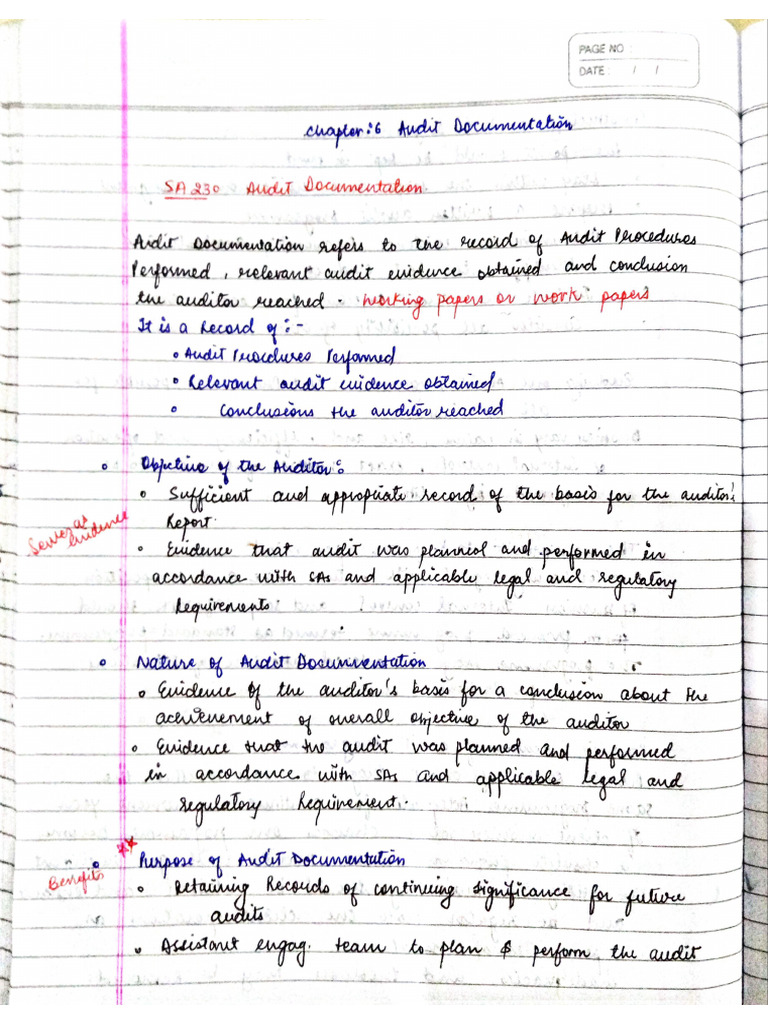 PAGE NO :
DATE : / /
Chapter:6 Audit Documentation
SA 230 Audit Documentation
Audit Documentation refers to the record of Audit Procedures
Performed, relevant audit evidence obtained and conclusion
the auditor reached. Working papers or work papers
It is a Record of :-
• Audit Procedures Performed
• Relevant audit evidence obtained
• Conclusions the auditor reached
• Objective of the Auditor:
• Sufficient and appropriate record of the basis for the auditor's
Report.
Serves as
Evidence
• Evidence that audit was planned and performed in
accordance with SAs and applicable legal and regulatory
Requirements.
• Nature of Audit Documentation
• Evidence of the auditor's basis for a conclusion about the
achievement of overall objective of the auditor
• Evidence that the audit was planned and performed
in accordance with SAs and applicable legal and
regulatory Requirement.
• Purpose of Audit Documentation
Benefits
• Retaining Records of continuing significance for future
audits
• Assistant engag. team to plan & perform the audit